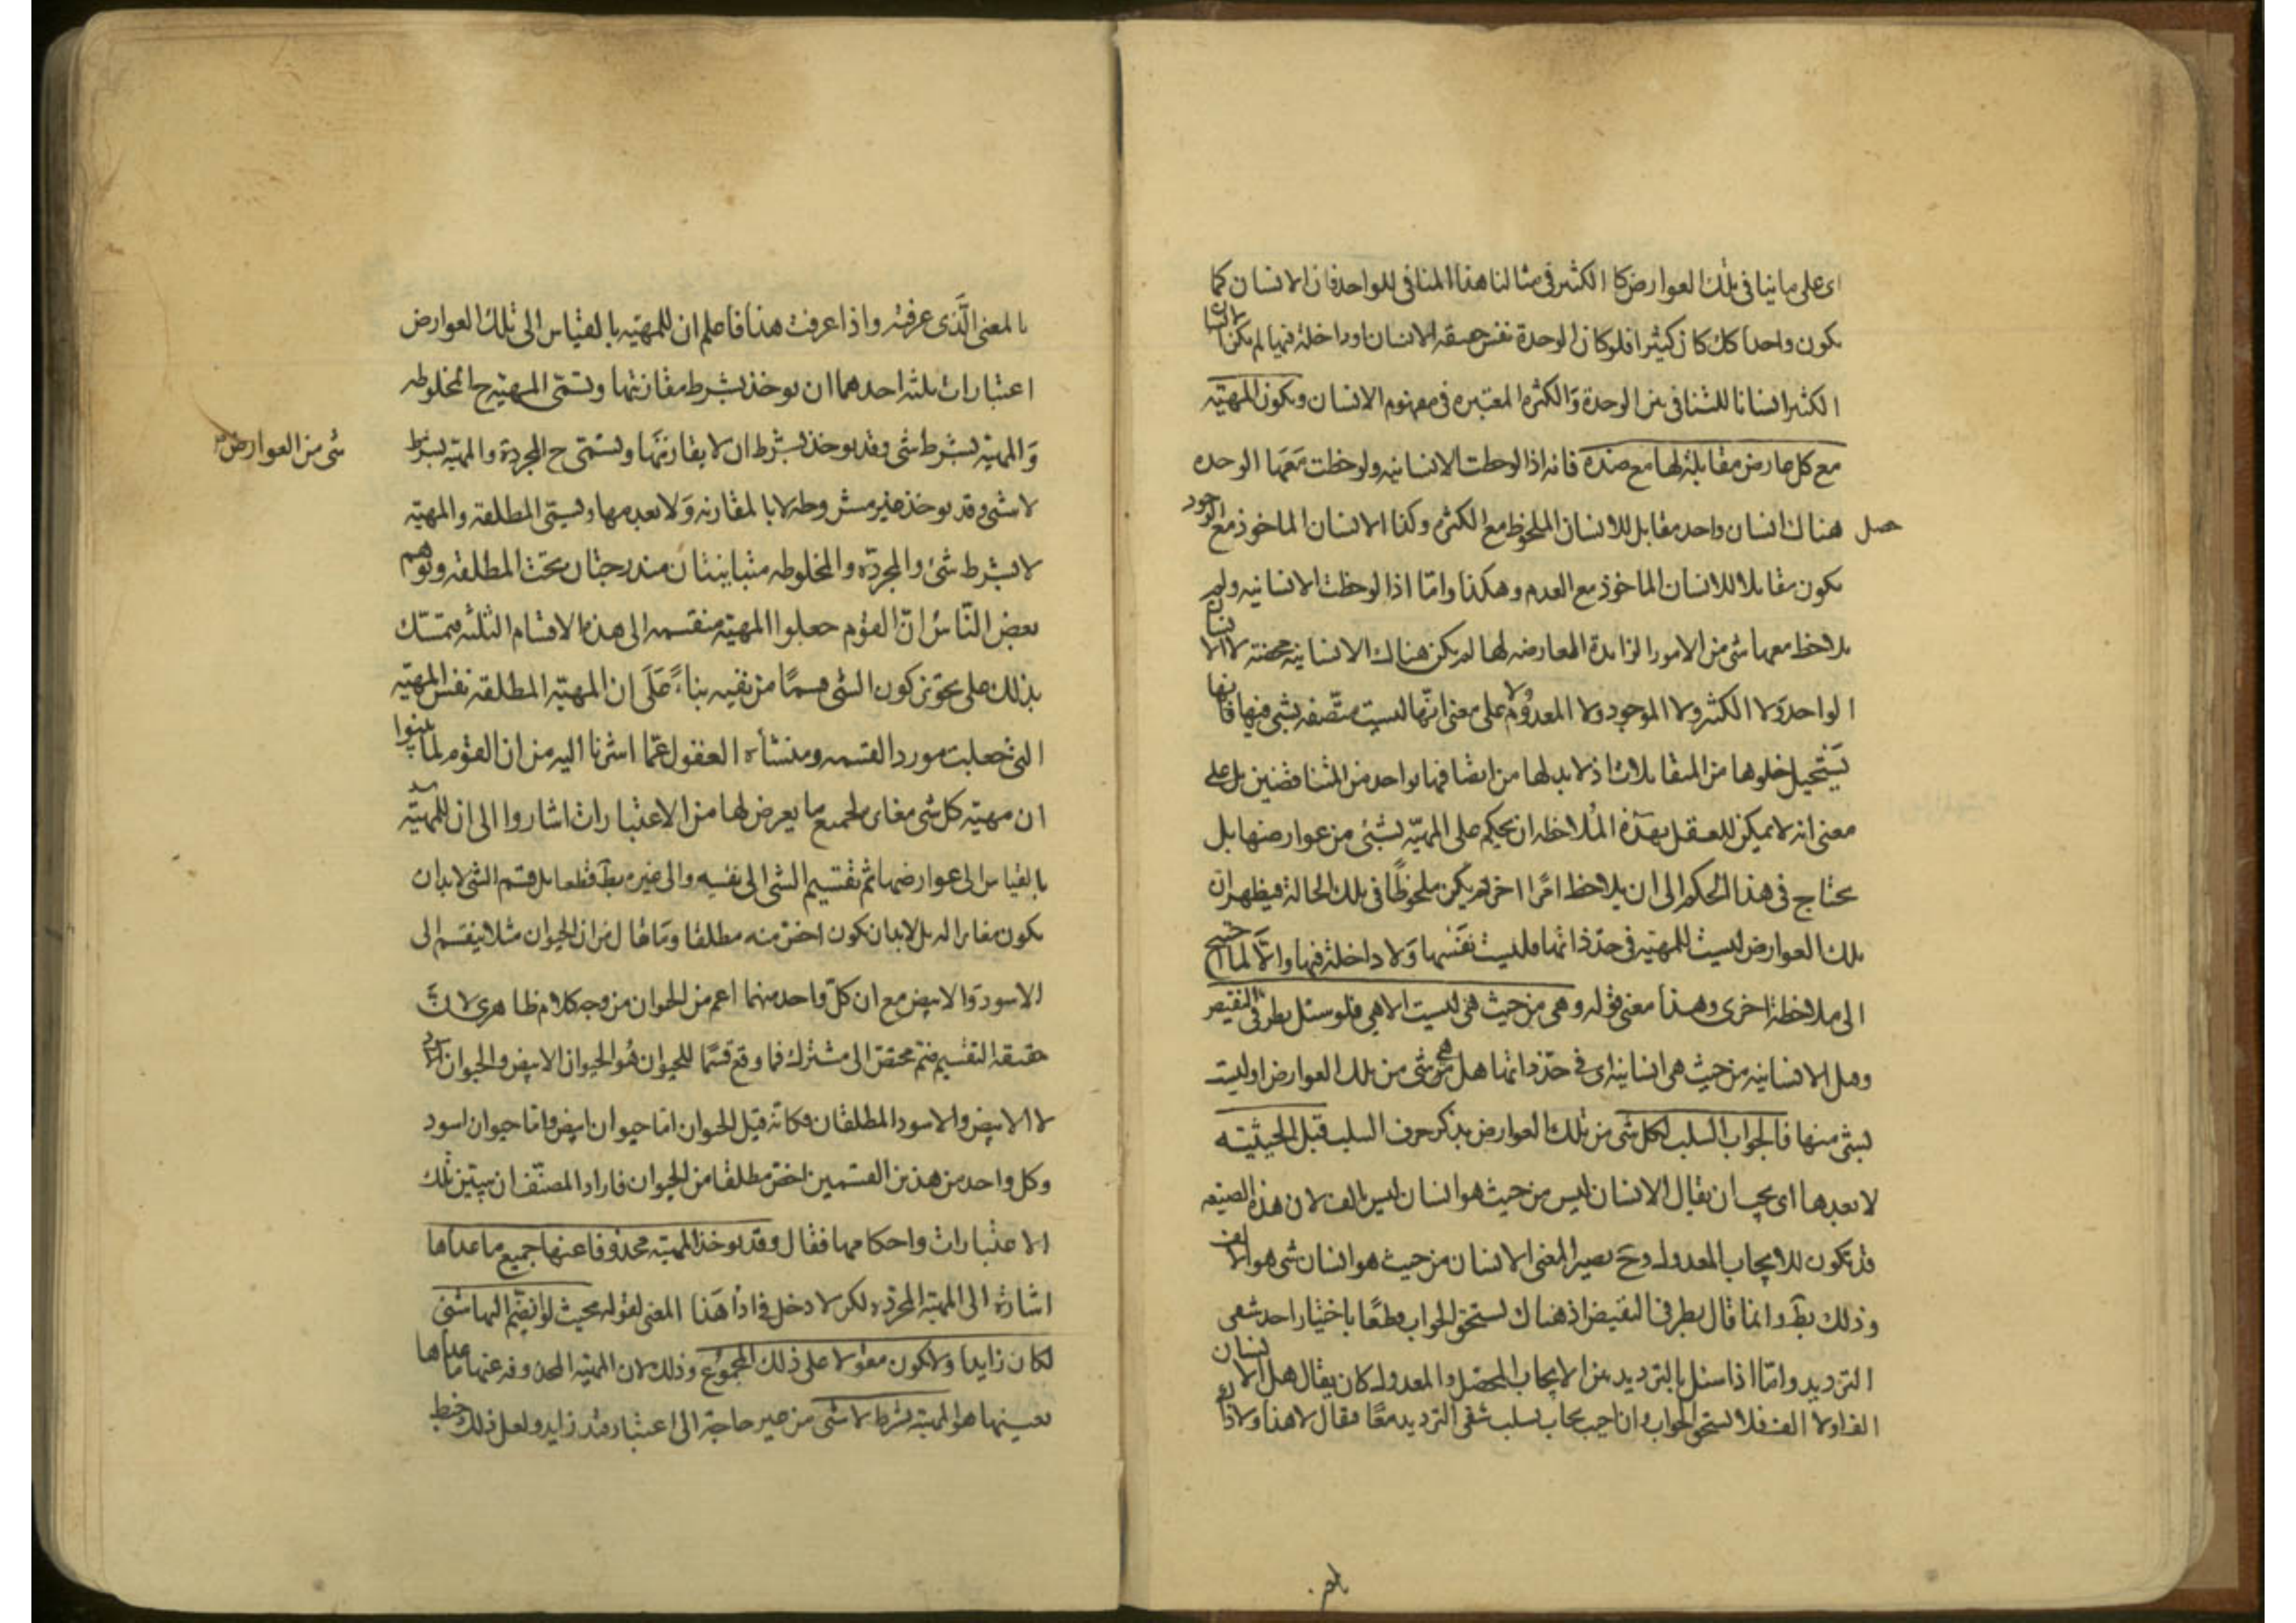 اى على ما ينافى تلك العوارض كا الكثير فى مثالنا هذا المنافى للواحد فان الانسان كما
يكون واحدا كك كان كثيرا فلو كان الوحدة نفس حقيقه الانسان او داخلة فيها لم يكن
الكثير انسانا للتنافى بين الوحدة وَالكثره المعتبره فى مفهوم الانسان ويكون المهيّة
مع كل عارض مقابلة لها مع ضده فانه اذا لوحظت الانسانيه ولوحظت مَعَها الوحده
حصل هناك انسان واحد مقابل للانسان الملحوظ مع الكثره وكذا الانسان الماخوذ مع الوجود
يكون مقابلا للانسان الماخوذ مع العدم وهكذا وامّا اذا لوحظت الانسانيه ولم
يلاحظ معها شى من الامور الزايدة العارضه لها لم يكن هناك الا انسانيه محضة لا الانسان
الواحد وَلا الكثير ولا الموجود ولا المعدوم لا على معنى انّها ليست متّصفه بشى منها فانها
يَستحيل خلوها من المتقابلات اذ لا بد لها من اتصافها بواحد من المتناقضين بل على
معنى انه لا يمكن للعقل بهذه المُلاحظه ان يحكم على المهيّه بشئى من عوارضها بل
يحتاج فى هذا الحكم الى ان يلاحظ امرًا اخر لم يكن ملحوظًا فى تلك الحالة فيظهر ان
تلك العوارض ليست للمهيّه فى حدّ ذاتها فليست نَفْسَها وَلا داخلة فيها وَالّا لما احتيج
الى ملاحظة اخرى وهذا معنى قوله وهى من حيث هى ليست الا هى فلو سئل بطرفى النقيض
وهل الانسانيه من حيث هى انسانيه اى فى حدّ ذاتها هل هى شى من تلك العوارض او ليست
بشى منها فالجواب السلب لكل شى من تلك العوارض بذكر حرف السلب قبل الحيثيّه
لا بعدها اى يجب ان يقال الانسان ليس من حيث هو انسان ليس بالف لان هذه الصيغه
قد تكون للايجاب المعدول وح يصير المعنى الانسان من حيث هو انسان شى هو لا الف
وذلك بط وانما قال بطرفى النقيض اذ هناك يستحق الجواب قطعًا باختيار احد شقى
الترديد وامّا اذا سئل بالترديد بين الايجاب المحصل والمعدول كان يقال هل الانسان
الف او لا الف فلا يستحق الجواب وان اجيب يجاب بسلب شقى الترديد معًا فقال لا هذا ولا ذا
بالمعنى الَّذى عرفته واذا عرفت هذا فاعلم ان للمهيّه بالقياس الى تلك العوارض
اعتبارات ثلثه احدهما ان يوخذ بشرط مقارنتها وتسمّى المهيّه ح المخلوطه
وَالمهيّه بشرط شى وقد يوخذ بشرط ان لا يقارنَهَا وتسمّى ح المجردة والمهيّه بشرط
شى من العوارض
لا شى وقد يوخذ غير مشروطه لا بالمقارنه وَلا بعدمها ويسمّى المطلقه والمهيّه
لا بشرط شئ والمجردّه والمخلوطه متباينتان مندرجتان تحت المطلقه وتوهم
بعض النّاس انّ القوم جعلوا المهيّه منقسمه الى هذه الاقسام الثلثه فتمسّك
بذلك على تجويز كون الشى قسمًا من نفيه بناءً عَلَى ان المهيّه المطلقه نفس المهيّه
التى جعلت مورد القسمه ومنشأه العفول عمّا اشرنا اليه من ان القوم لما بينوا
ان مهيّه كل شى مغاير لجميع ما يعرض لها من الاعتبارات اشاروا الى ان للمهيّة
بالقياس الى عوارضها ثم تقسيم الشى الى نفسه والى غيره بط قطعا بل قسم الشى لا بد ان
يكون مغايرا له بل لابد ان يكون اخصّ منه مطلقا وما يقال من ان الحيوان مثلا ينقسم الى
الاسود وَالابيض مع ان كلّ واحد منهما اعم من الحيوان من وجه كلام ظاهرى لانّ
حقيقه التقسيم ضمّ مختصّ الى مشترك فما وقع قسمًا للحيوان هُو الحيوان الابيض والحيوان الاسود
لا الابيض والاسود المطلقان فكانّه قيل للحيوان امّا حيوان ابيض وامّا حيوان اسود
وكل واحد من هذين القسمين اخصّ مطلقا من الحيوان فاراد المصنّف ان يبيّن تلك
الاعتبارات واحكامها فقال وقد يوخذ المهيّه محذوفا عنها جميع ما عداها
اشارة الى المهيّه المجرّده لكن لا دخل فى اداء هَذا المعنى لقوله بحيث لو انضّم اليها شئى
لكان زايدا ولا يكون مقولا على ذلك المجموع وذلك لان المهيّه المحذوفه عنها ما عداها
بعينها هو المهيّه بشرط لا شى من غير حاجة الى اعتبار قيد زايد ولعل ذلك خبط
بالم